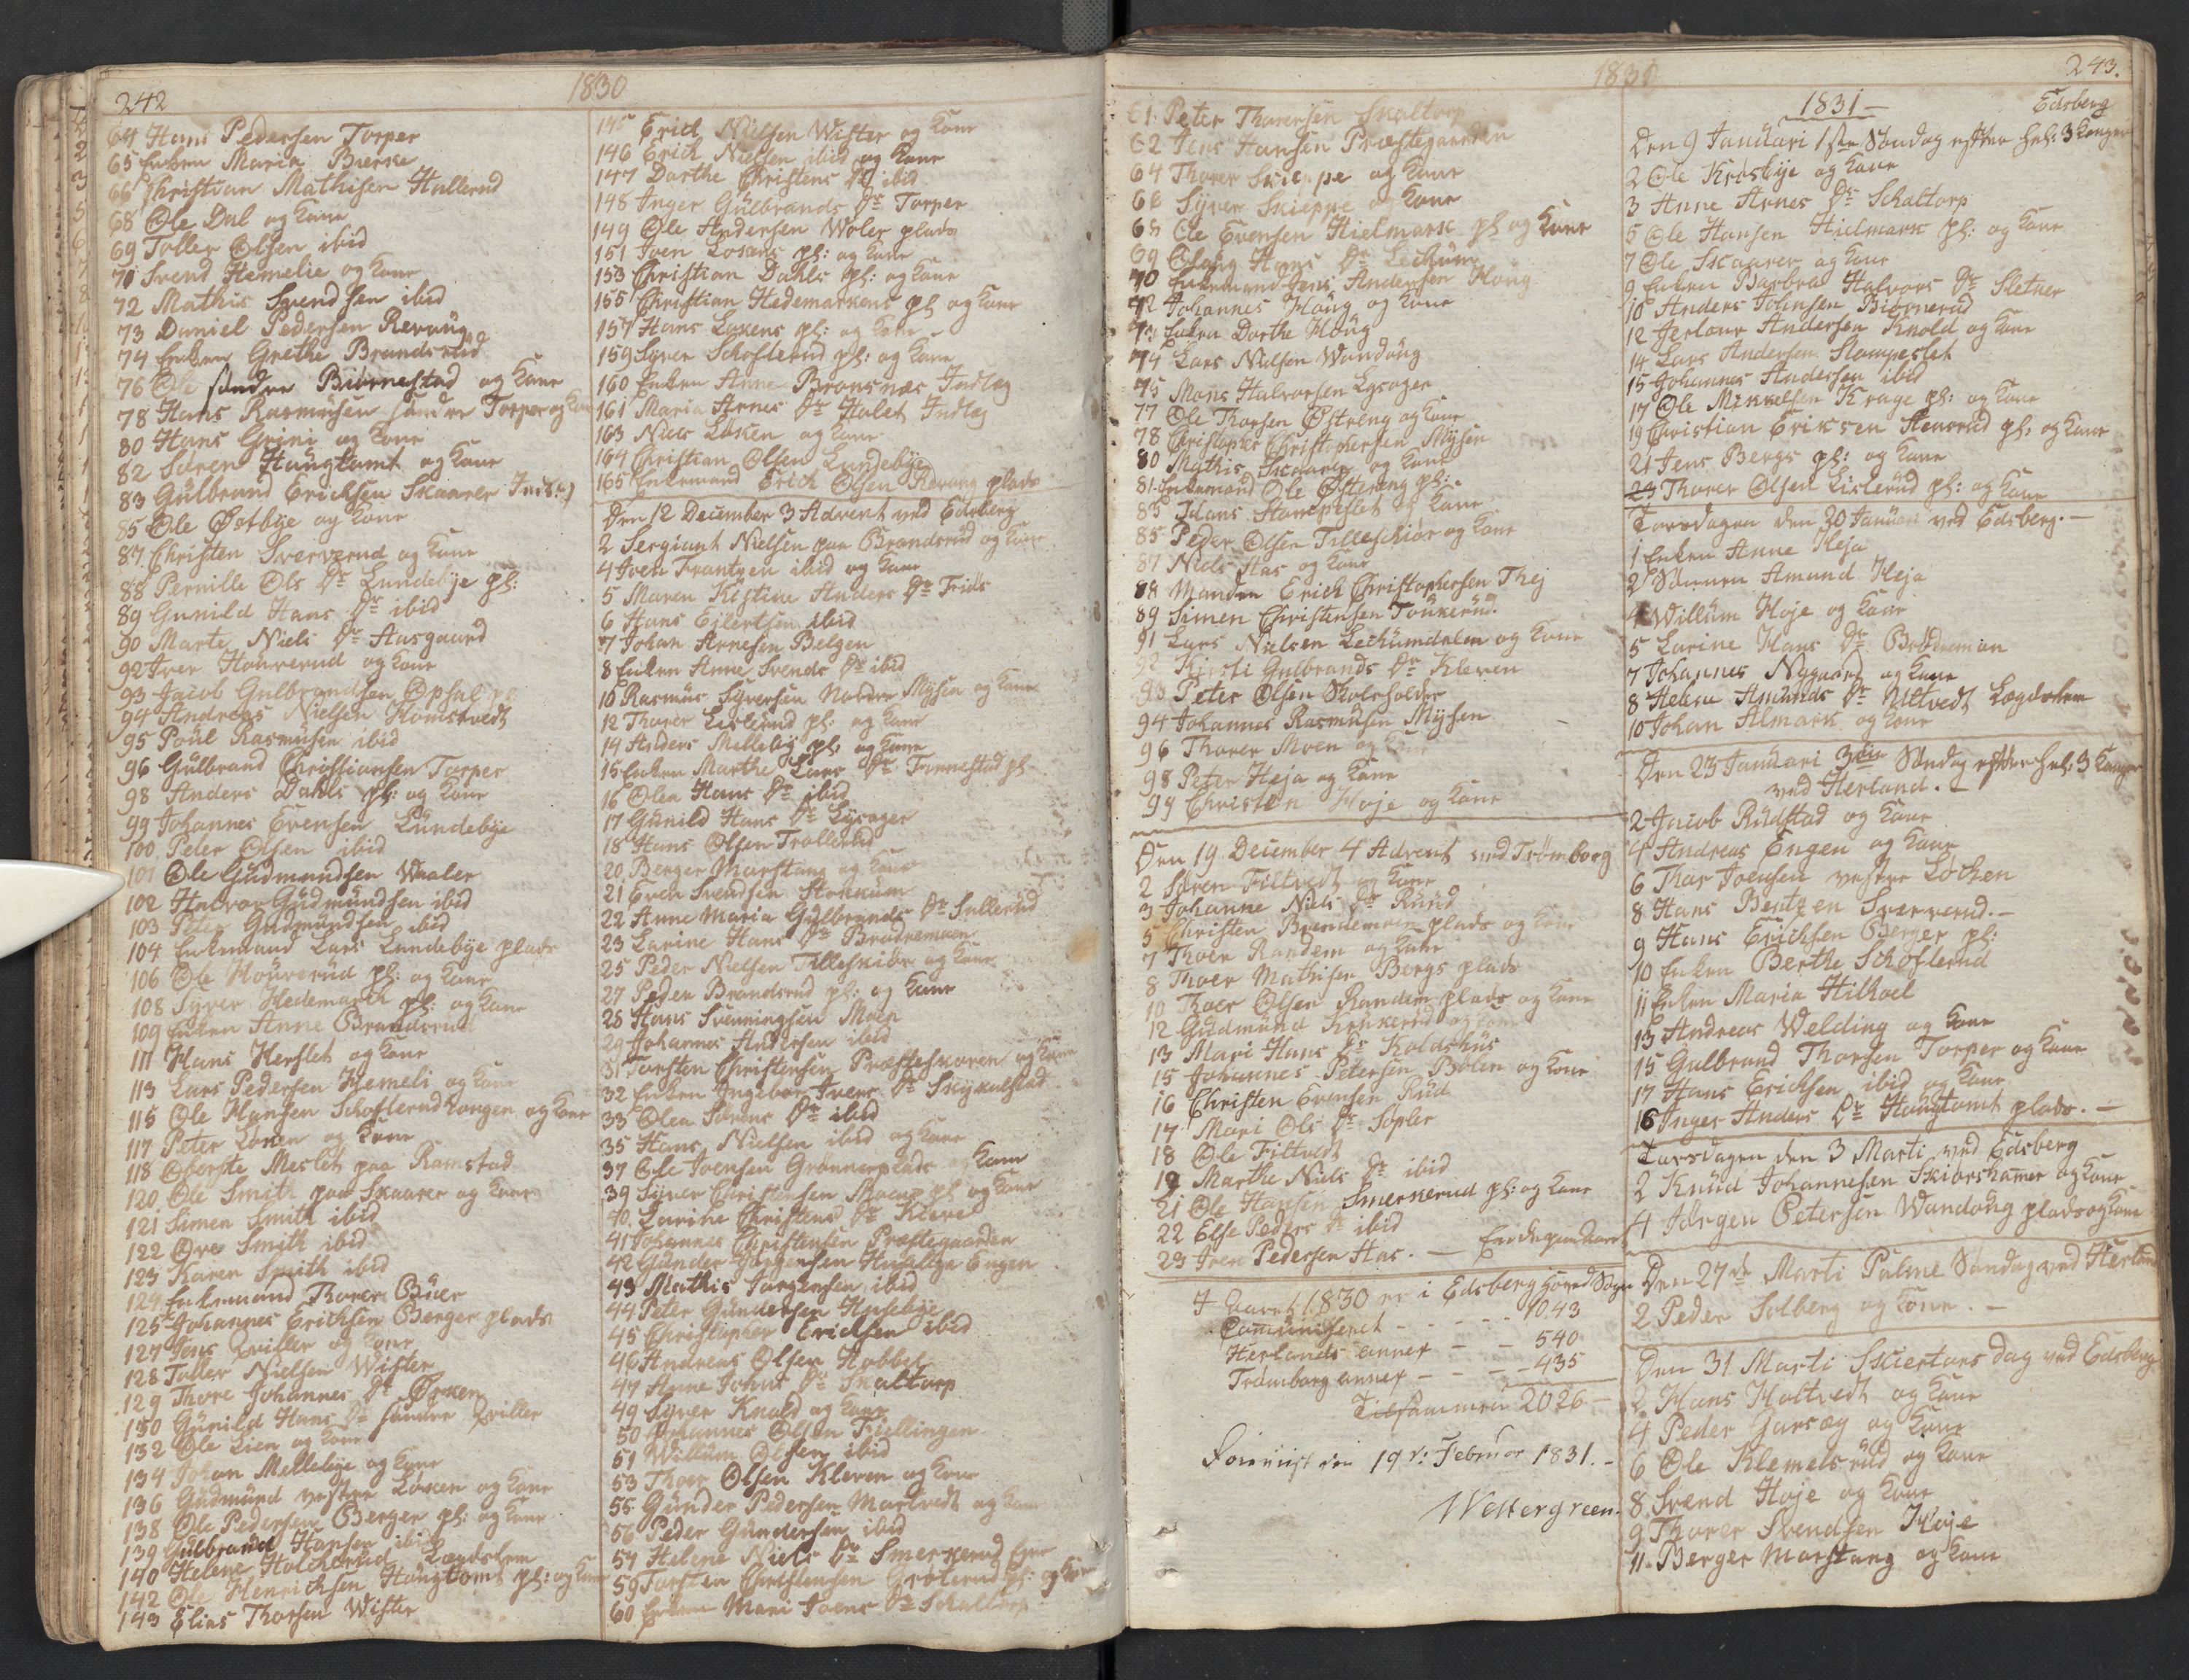 242
1830
64 Hans Pedersen Torper
65 Enken Maria Bierke
66 Christian Mathisen Hullerud
68 Ole Dal og Kone
69 Toller Olsen ibid
70 Svend Hemelie og Kone
72 Mathis Svendsen ibid
73 Daniel Pedersen Revoug
74 Enken Grethe Brandsrud
76 Ole søndre Biørnestad og Kone
78 Hans Rasmusen søndre Torper og Kone
80 Hans Grini og Kone
82 Søren Haugtomt og Kone
83 Gulbrand Erichsen Skaarer Inds:
85 Ole Østbye og Kone
87 Christen Sververud og Kone
88 Pernille Ols Dr Lundebye pl:
89 Gunild Hans Dr ibid
90 Marte Niels Dr Aasgaard
92 Iver Houverud og Kone
93 Jacob Gulbrandsen Opsal
94 Andreas Nielsen Homstvedt
95 Poul Rasmusen ibid
96 Gulbrand Christiansen Torper
98 Anders Dahls pl: og Kone
99 Johannes Evensen Lundebye
100 Peter Olsen ibid
101 Ole Gudmundsen Waaler
102 Halvor Gudmundsen ibid
103 Peter Gudmundsen ibid
104 Enkemand Lars Lundebye plads
106 Ole Houverud pl: og Kone
108 Syver Hedemark pl: og Kone
109 Enken Anne Brandsrud
111 Hans Herslet og Kone
113 Lars Pedersen Hemeli og Kone
115 Ole Hansen Schofterud Kongen og Kone
117 Peter Løken og Kone
118 Oberste Meslet paa Ramstad
120 Ole Smith paa Skaarer og Kone
121 Simen Smith ibid
122 Ove Smith ibid
123 Karen Smith ibid
124 Enkemand Thorer Buer
125 Johannes Erichsen Berger plads
127 Jens Qviller og Kone
128 Toller Nielsen Wister
129 Thore Johannes Dr Ørken
130 Gunild Hans Dr søndre Qviller
132 Ole Lien og Kone
134 Johan Mellebye og Kone
136 Gudmund vestre Løken og Kone
138 Ole Pedersen Berger pl: og Kone
139 Gulbrand Hansen ibid
140 Helene Holckerud Lægdslem
142 Ole Henrichsen Haugtomt pl: og Kone
143 Elias Thorsen Wister
145 Erich Nielsen Wister og Kone
146 Erich Nielsen ibid og Kone
147 Dorthe Christens Dr ibid
148 Inger Gulbrands Dr Torper
149 Ole Andersen Woler plads
151 Joen Løkens pl: og Kone
153 Christian Dahls pl: og Kone
155 Christian Hedemarkens pl og Kone
157 Hans Løkens pl: og Kone
159 Syver Schofterud pl: og Kone
160 Enken Anne Bronsnæs Indlæg
161 Maria Arnes Dr Holet Indlæg
163 Niels Løken og Kone
164 Christian Olsen Lundebye
165 Enkemand Erich Olsen Revoug plads
Den 12 December 3 Advent ved Edsberg
2 Sergiant Nielsen paa Brandsrud og Kone
4 Joen Frantzen ibid og Kone
5 Maren Kistine Anders Dr Friis
6 Hans Eilertsen ibid
7 Johan Arnesen Belgen
8 Enken Anne Svends Dr ibid
10 Rasmus Syversen Nordre Mysen og Kone
12 Thorer Lislerud pl: og Kone
14 Anders Mellebye pl: og Kone
15 Enken Marthe Lars Dr Finnestad pl
16 Olea Hans Dr ibid
17 Gunild Hans Dr Lysager
18 Hans Olsen Trollerud
20 Berger Marstang og Kone
21 Even Svendsen Stokkum
22 Anne Maria Gulbrands Dr Sullerud
23 Larine Hans Dr Brødremoen
25 Peder Nielsen Tilleskiør og Kone
27 Peder Brandsrud pl: og Kone
28 Hans Svenningsen Moen
29 Johannes Andersen ibid
31 Torsten Christensen Præsteskoven og Kone
32 Enken Ingebor Ivers Dr Skykulstad
33 Olea Sørens Dr ibid
35 Hans Nielsen ibid og Kone
37 Ole Joensen Grønnerplads og Kone
39 Syver Christensen Moens pl og Kone
40 Larine Christens Dr Kleve
41 Johannes Christensen Præstegaarden
42 Gunder Jørgensen Huseltye Engen
43 Mathis Jørgensen ibid
44 Peter Gundersen Husebye
45 Christopher Erichsen ibid
46 Andreas Olsen Hobbel
47 Anne Johns Dr Skaltorp
49 Syver Knold og Kone
50 Johannes Olsen Kiellingen
51 Willum Olsen ibid
53 Thoer Olsen Kleven og Kone
55 Gunder Pedersen Martvedt og Kone
56 Peder Gundersen ibid
57 Helene Niels Dr Smerkerud Eier
59 Torsten Christensen Grøterud pl: og Kone
60 Enken Mari Joens Dr Schaltorp
1830
243.
61 Peter Thorersen Skaltorp
62 Jens Hansen Præstegaarden
64 Thorer Skieppe og Kone
66 Syver Skieppe og Kone
68 Ole Evensen Hielmark pl og Kone
69 Olaug Hans Dr Lechum
70 Enkemand Jens Andersen Houg
72 Johannes Houg og Kone
73 Enken Dorthe Houg
74 Lars Nielsen Wandoug
75 Mons Halvorsen Lysager
77 Ole Thorsen Østreng og Kone
78 Christopher Christophersen Mysen
80 Mathis Skaarer og Kone
81 Enkemand Ole Østereng pl:
83 Hans Stampeslet og Kone
85 Peder Olsen Tilleschiør og Kone
87 Niels Aas og Kone
88 Manden Erich Christophersen Thej
89 Simen Christensen Toukerud
91 Lars Nielsen Lechumdalen og Kone
92 Kirsti Gulbrands Dr Kleven
93 Peter Olsen Skoleholder
94 Johannes Rasmusen Mysen
96 Thorer Moen og Kone
98 Peter Heja og Kone
99 Christen Høje og Kone
Den 19 December 4 Advent ved Trømborg
2 Søren Filtvedt og Kone
3 Johanne Niels Dr Rund
5 Christen Brandemoen plads og Kone
7 Thoer Randem og Kone
8 Thoer Mathisen Bergs plads
10 Thoer Olsen Randem plads og Kone
12 Gudmund Krukerud og Kone
13 Mari Hans Dr Koldshus
15 Johannes Petersen Bolen og Kone
16 Christen Evensen Rud
17 Mari Ols Dr Sopler
18 Ole Filtvedt
19 Marthe Niels Dr ibid
21 Ole Hansen Smerkerud pl: og Kone
22 Else Peders Dr ibid
23 Joen Pedersen Aas. —
I Aaret 1830 er i Edsberg Hoved Sogn
Comuniseret - - - - - 1043
Herlands annex - - - 540
Trømborg annex - - - 435
Tilsammen 2026 —
den 19de Februar 1831. -
Wettergreen.
1831 —
Edsberg
Den 9 Januari 1ste Søndag efter Hel: 3 Konger
2 Ole Krosbye og Kone
3 Anne Arnes Dr Schaltorp
5 Ole Hansen Hielmark pl: og Kone
7 Ole Skaarer og Kone
9 Enken Barbra Halvors Dr Sletner
10 Anders Johnsen Biørnerud
12 Jerlour Andersen Knold og Kone
14 Lars Andersen Stampeslet
15 Johannes Andersen ibid
17 Ole Mikkelsen Krage pl: og Kone
19 Christian Eriksen Stensrud pl: og Kone
21 Jens Bergs pl: og Kone
23 Thorer Olsen Lislerud pl: og Kone
Torsdagen den 20 Januari ved Edsberg. —
1 Enken Anne Heja
2 Sønnen Amund Heja
4 Willum Høje og Kone
5 Larine Hans Dr Brødremoen
7 Johannes Nygaard og Kone
8 Helena Amunds Dr Ultvedt Lægdslem
10 Johan Almark og Kone
Den 23 Januari 3die Søndag efter Hel: 3 Konger
ved Herland. —
2 Jacob Rudstad og Kone
4 Andreas Engen og Kone
6 Thor Joensen vestre Løchen
8 Hans Bentzen Sververud. —
9 Hans Erichsen Berger pl:
10 Enken Berthe Schofterud
11 Enken Maria Hilkoel
13 Andreas Welding og Kone
15 Gulbrand Thorsen Torper og Kone
17 Hans Erichsen ibid og Kone
16 Inger Anders Dr Haugtomt plads. —
Torsdagen den 3 Marti ved Edsberg
2 Knud Johannesen Skiørshamer og Kone
4 Jørgen Petersen Wandoug plads og Kone
Den 27de Marti Palme Søndag ved Herland
2 Peder Solberg og Kone. —
Den 31 Marti Skiertorsdag ved Edsberg
2 Hans Holtvedt og Kone
4 Peder Garseg og Kone
6 Ole Klemetsrud og Kone
8 Svend Høje og Kone
9 Thorer Svendsen Høje
11 Berger Marstang og Kone